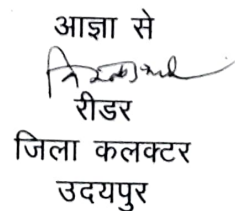 आज्ञा से
रीडर
जिला कलक्टर
उदयपुर